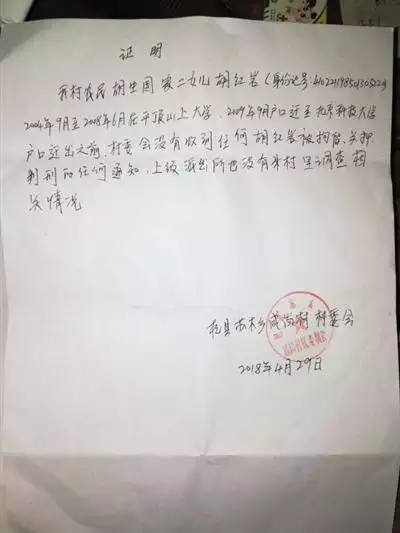 证明
我村农民胡生国家二女儿胡红岩(身份证号:
2004年9月至2008年6月在平顶山上大学,2009年9月户口迁至北京科技大学
户口迁出之前,村委会没有收到任何胡红岩被拘留、关押、
判刑的任何通知,上级派出所也没有来村里调查相
关情况
杞县苏木乡成尚村 村委会
2018年4月29日